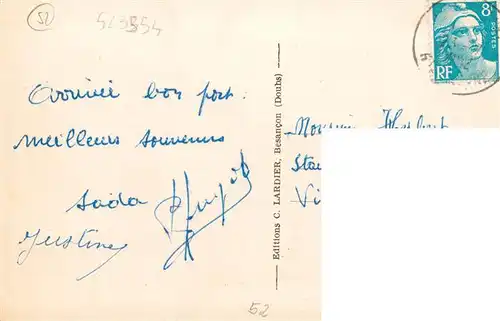 52
Arrivée bon port.
meilleurs souvenirs
Sada
Justine
Editions C. LARDIER, Besançon (Doubs)
8F
POSTES
RF
Monsieur
Sta
Vi
52